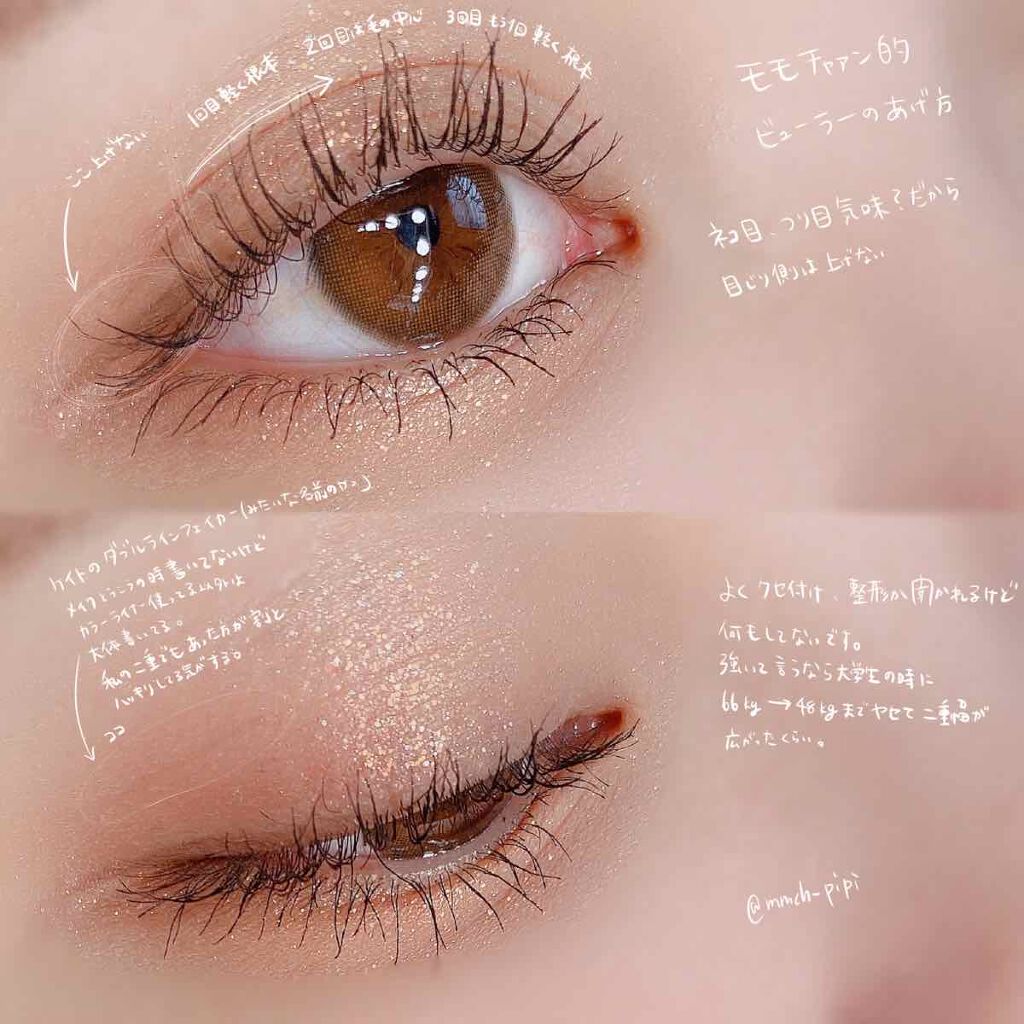 1回目軽く根本、2回目は毛の中心、3回目もう1回軽く根本
ここ上げない
モモチャァン的
ビューラーのあげ方
ネコ目、つり目気味?だから
目じり側は上げない
ケイトのダブルラインフェイカー(みたいな名前のヤツ)
メイクとラーフの時書いてないけど
カラーライナー使ってる以外は
大体書いてる。
私の二重でもあった方が割と
ハッキリしてる気がする。
ココ
よくクセ付け、整形か聞かれるけど
何もしてないです。
強いて言うなら大学生の時に
66kg→48kgまでヤセて二重幅が
広がったくらい。
@mmch-pipi